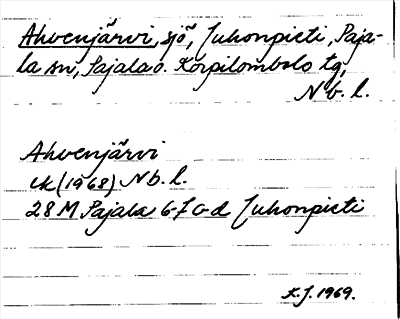 Ahvenjärvi, sjö, Juhonpieti, Paja-
la sn, Pajala o. Korpilombolo tg,
Nb. l.
Ahvenjärvi
ek (1968) Nb. l.
28 M Pajala 6-7 c-d Juhonpieti
K.J. 1969.